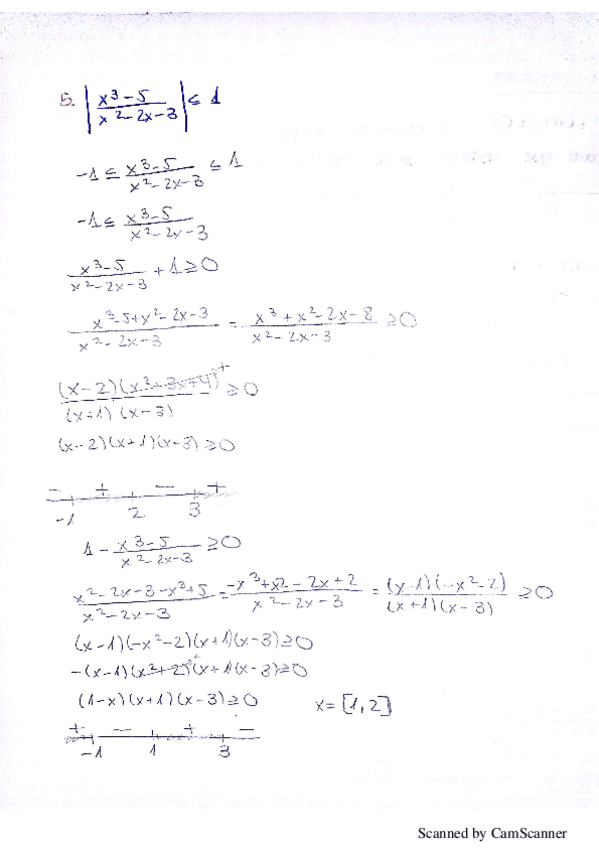 5. |x³-5 / x²-2x-3| ≤ 1
-1 ≤ x³-5 / x²-2x-3 ≤ 1
-1 ≤ x³-5 / x²-2x-3
x³-5 / x²-2x-3 + 1 ≥ 0
x³-5+x²-2x-3 / x²-2x-3 = x³+x²-2x-8 / x²-2x-3 ≥ 0
(x-2)(x²+3x+4)⁺ / (x+1)(x-3) ≥ 0
(x-2)(x+1)(x-3) ≥ 0
- + - +
-1 2 3
1 - x³-5 / x²-2x-3 ≥ 0
x²-2x-3-x³+5 / x²-2x-3 = -x³+x2-2x+2 / x²-2x-3 = (x-1)(-x²-2) / (x+1)(x-3) ≥ 0
(x-1)(-x²-2)(x+1)(x-3) ≥ 0
-(x-1)(x²+2)⁺(x+1)(x-3) ≥ 0
(1-x)(x+1)(x-3) ≥ 0 x = [1,2]
+ - + -
-1 1 3
Scanned by CamScanner